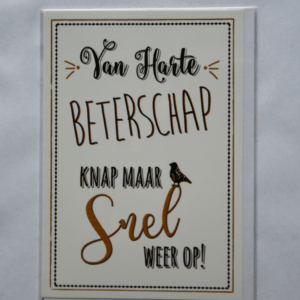 Van Harte
BETERSCHAP
KNAP MAAR
Snel
WEER OP!